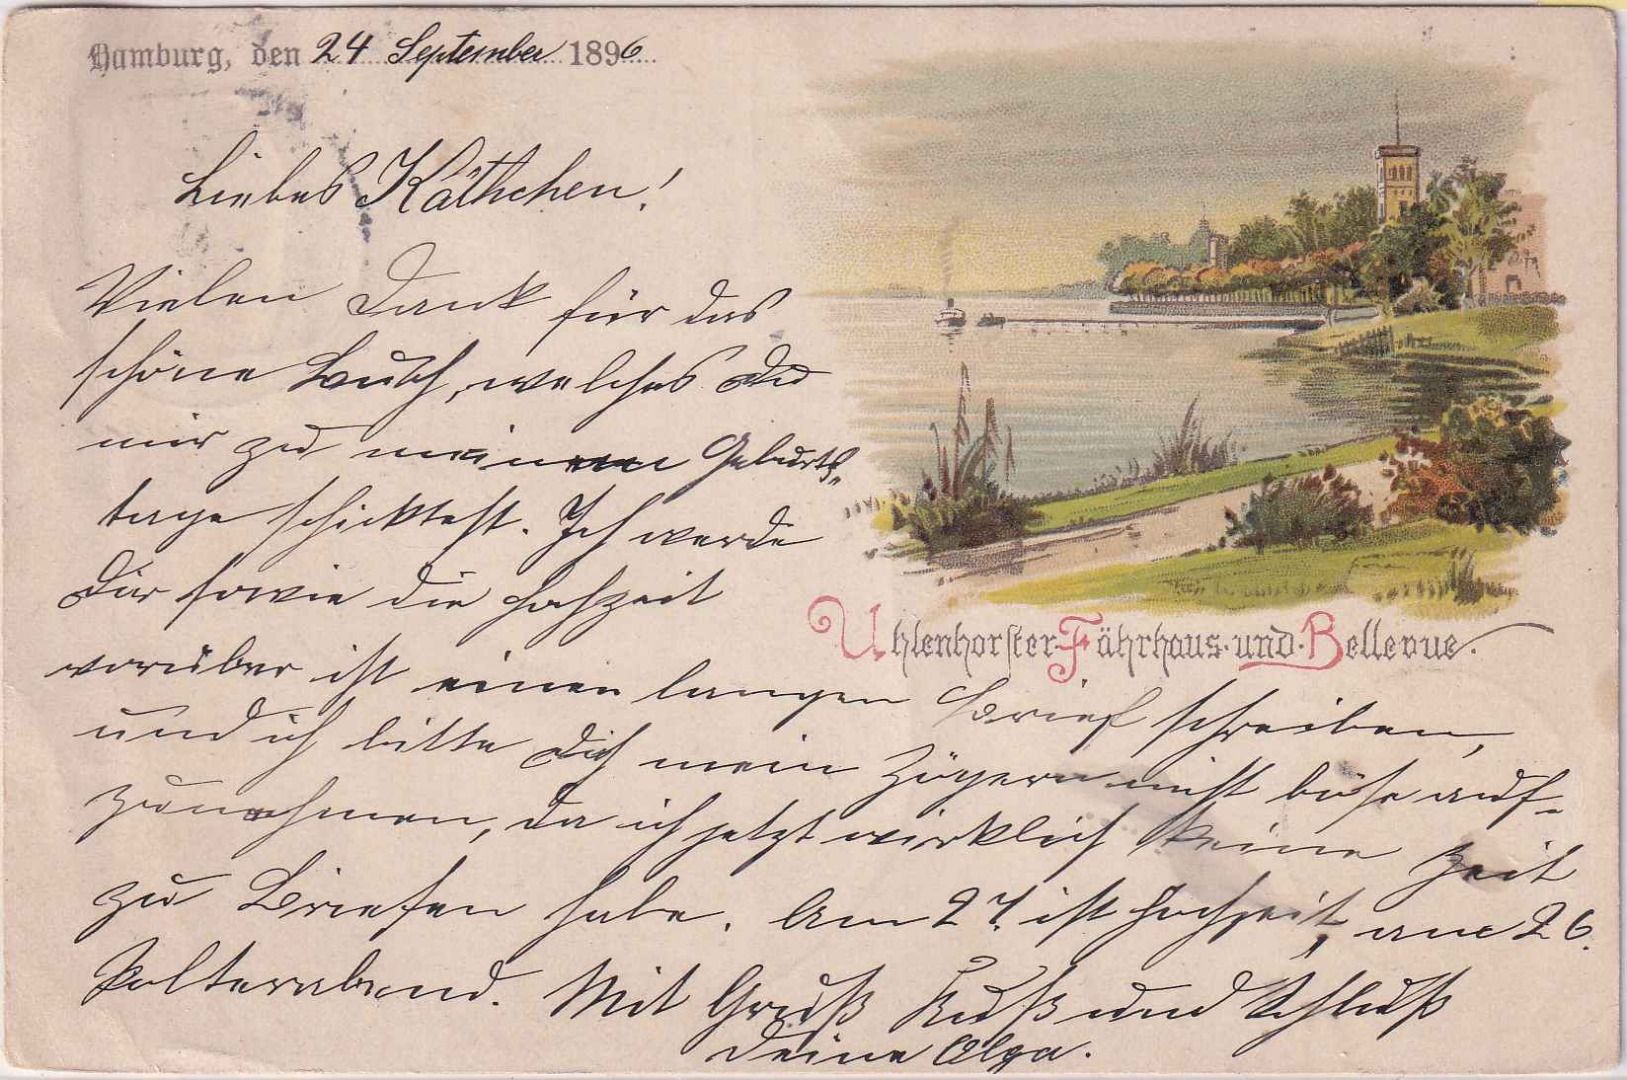 Hamburg, den 24 September 1896
Liebes Käthchen!
Vielen Dank für das
schöne Buch, welches Du
mir zu meinem Geburts-
tage schicktest. Ich werde
Dir sowie die Hochzeit
vorüber ist einen langen Brief schreiben,
und ich bitte Dich mein Zögern nicht böse auf-
zunehmen, da ich jetzt wirklich keine Zeit
zu Briefen habe. Am 27. ist Hochzeit, am 26.
Polterabend. Mit Gruß Kuß und Schluß
Deine Olga.
Uhlenhorster-Fährhaus-und-Bellevue.